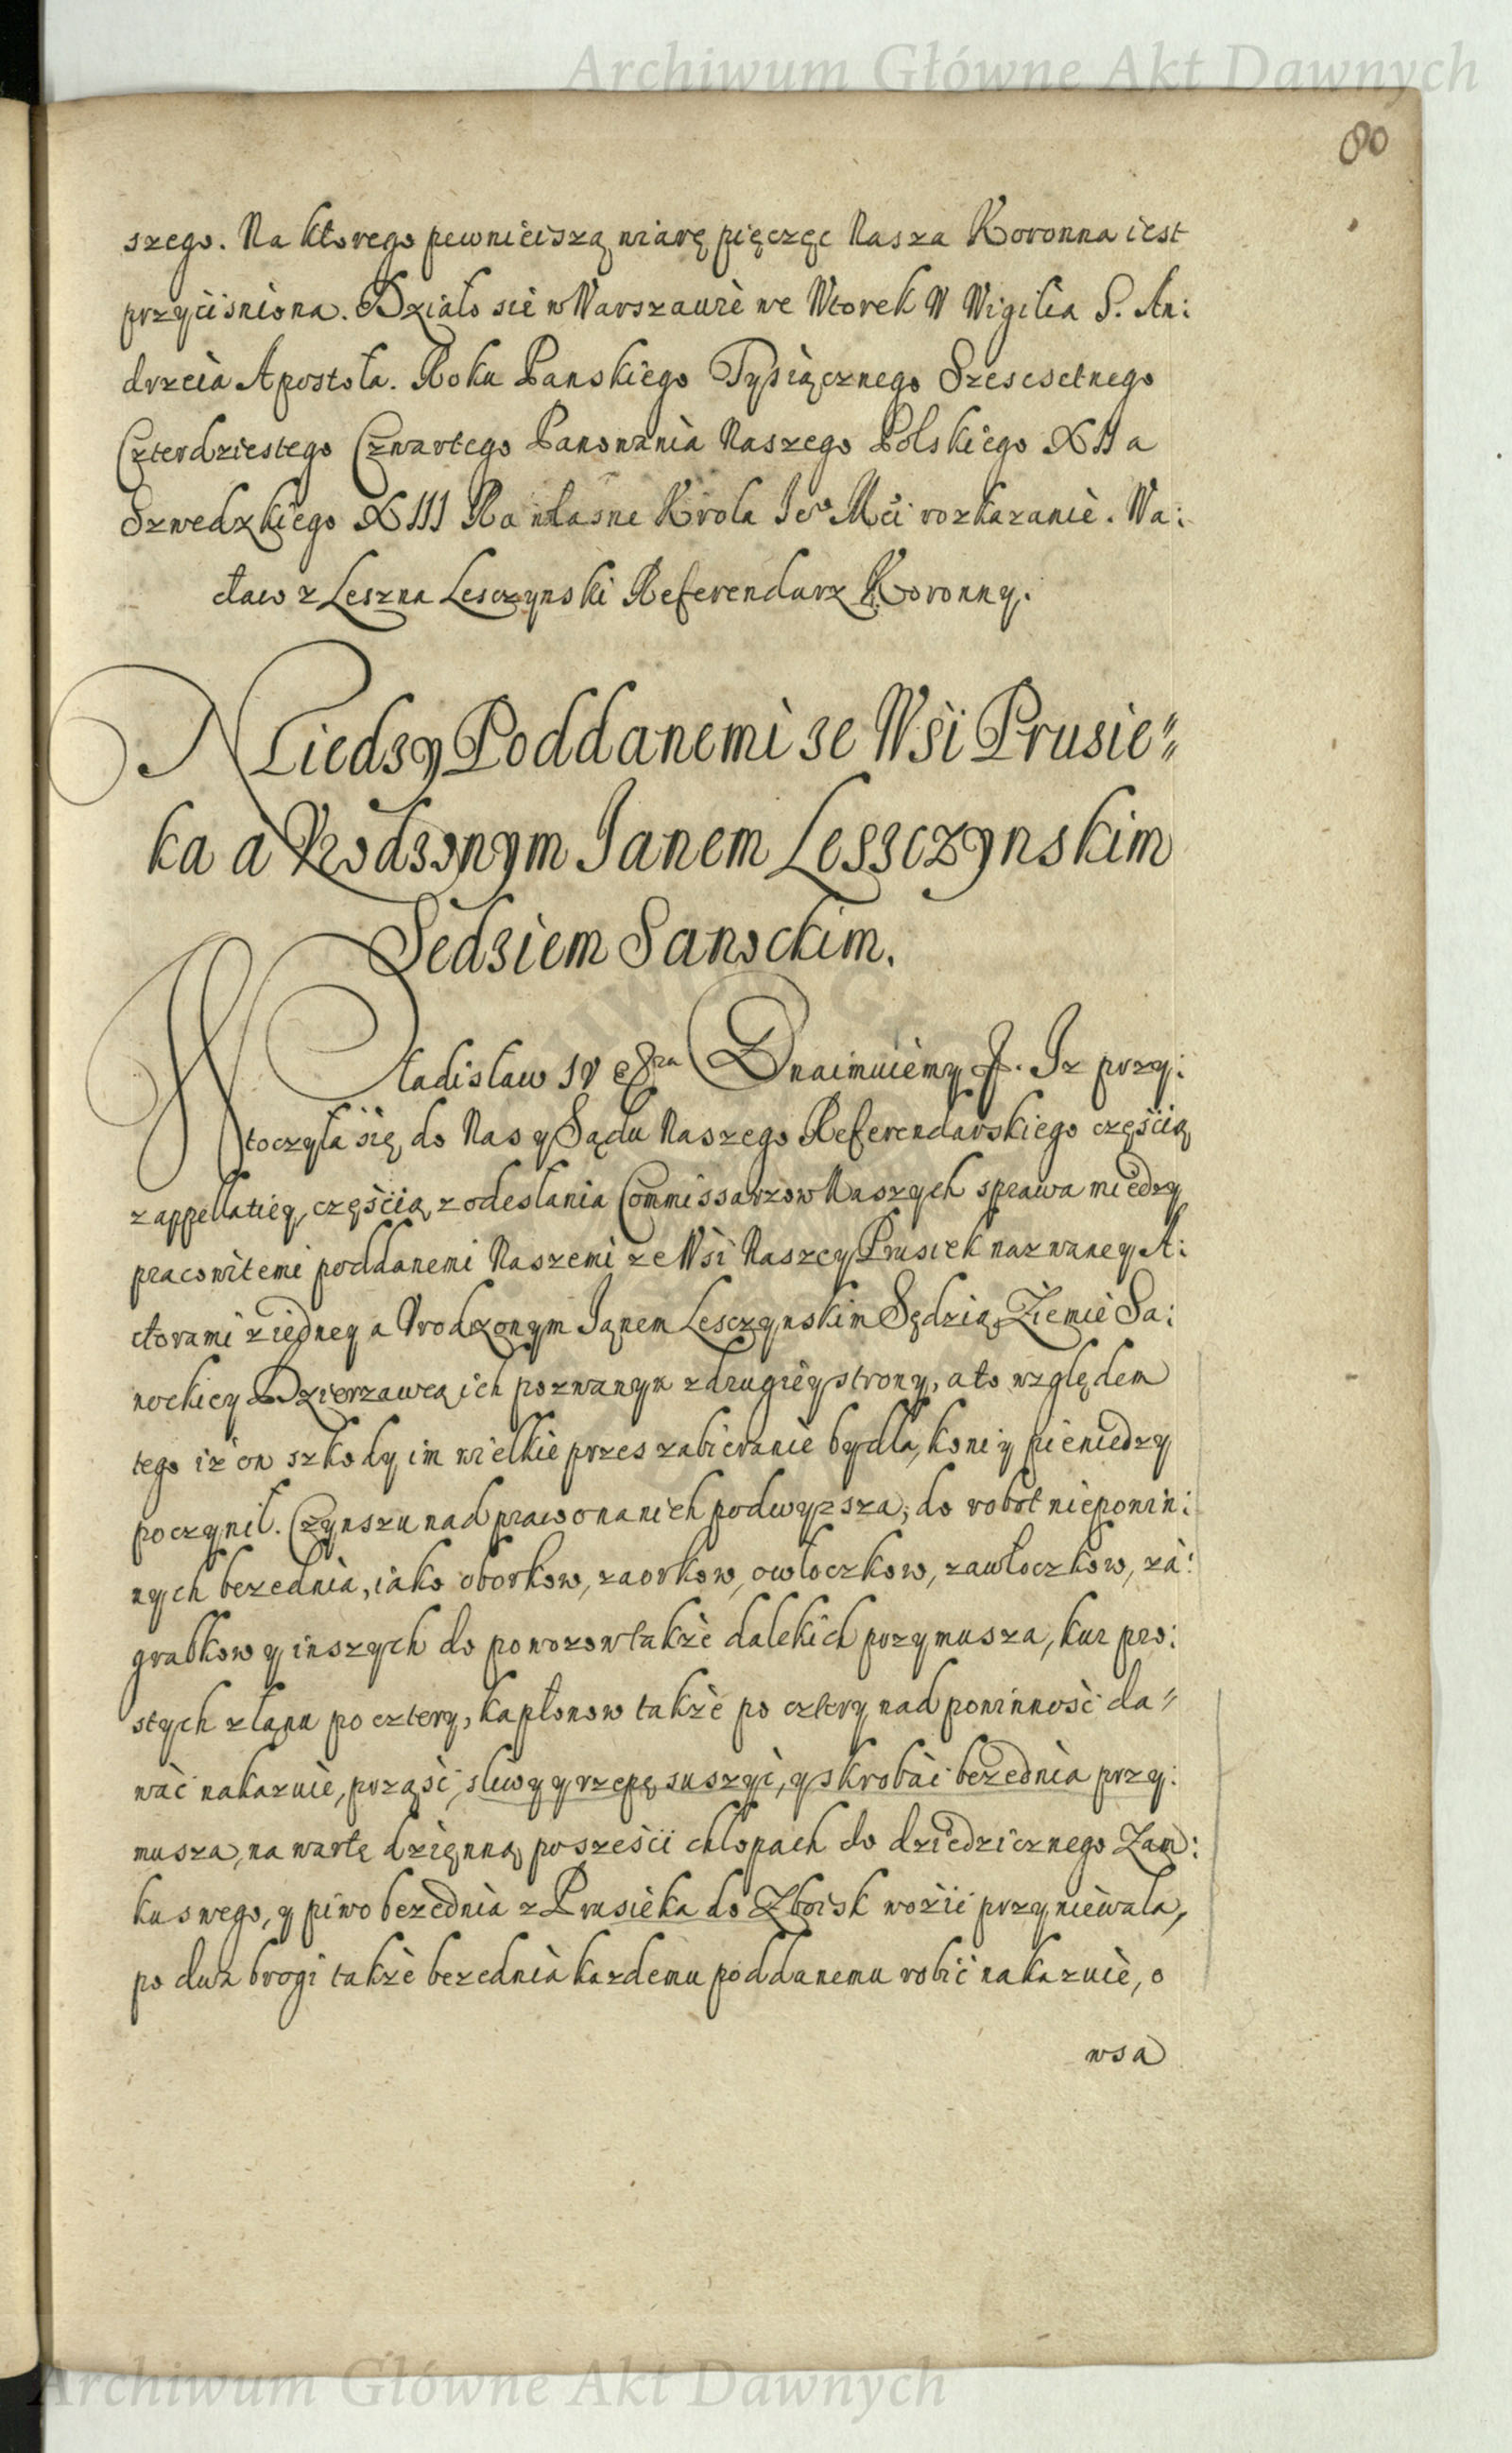 Archiwum Główne Akt Dawnych
80
szego. Na ktorego pewnieiszą wiarę pięczęc Nasza Koronna iest
przyciśniona. Działo sie w Warszawie we Wtorek W Wigilia S. An:
drzeia Apostoła. Roku Panskiego Tysiącznego Szescsetnego
Czterdziestego Czwartego Panowania Naszego Polskiego XII a
Szwedzkiego XIII Na własne Krola Je° Mći rozkazanie. Wa:
cław z Leszna Lesczynski Referendarz Koronny.
Miedzy Poddanemi ze Wsi Prusie„
ka a Vrodzonym Janem Leszczynskim
Sedziem Sanockim.
Władisław IV etra Oznaimuiemy J. Iz przy:
toczyła się do Nas y Sądu Naszego Referendarskiego częścią
z appellatiey, częścią z odesłania Commissarzow Naszych sprawa miedzy
pracowitemi poddanemi Naszemi ze Wsi Naszey Prusiek nazwaney A:
ctorami z iedney a Vrodzonym Janem Lesczynskim Sędzią Ziemie Sa:
nockiey Dzierzawcą ich pozwanym z drugiey strony, a to względem
tego iż on szkody im wielkie przes zabieranie bydła, koni y pieniedzy
poczynił. Czynszu nad prawo na nich podwyzsza, do robot niepowin:
nych bezednia, iako oborkow, zaorkow, owłoczkow, zawłoczkow, za:
grabkow y inszych do powozow także dalekich przymusza, kur pro:
stych z łanu po cztery, kapłonow także po cztery nad powinność da„
wać nakazuie, prząść, sliwy y rzepę suszyć, y skrobać bezednia przy:
musza, na wartę dzięnną po sześci chłopach do dziedzicznego Zam:
ku swego, y piwo bezednia z Prusieka do Zboisk wozić przyniewala,
po dwa brogi także bezednia kazdemu poddanemu robić nakazuie, o
wsa
Archiwum Główne Akt Dawnych